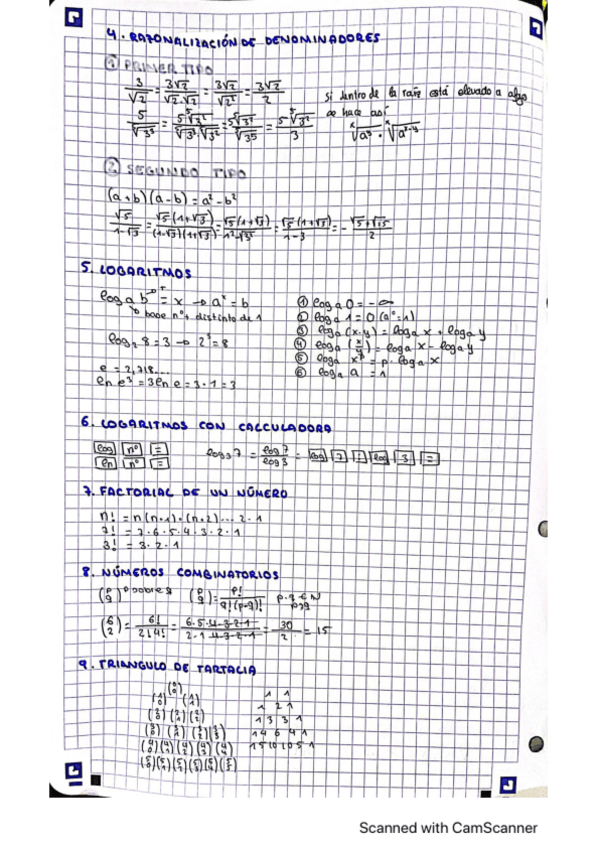 4. RAZONALIZACIÓN DE DENOMINADORES
① PRIMER TIPO
3/√2 = 3√2/√2·√2 = 3√2/√2² = 3√2/2
si dentro de la raíz está elevado a algo
se hace así
5/⁵√3³ = 5⁵√3²/⁵√3³·⁵√3² = 5⁵√3²/⁵√3⁵ = 5⁵√3²/3
ˣ√aʸ · ˣ√aˣ⁻ʸ
② SEGUNDO TIPO
(a+b)(a-b) = a²-b²
√5/1-√3 = √5(1+√3)/(1-√3)(1+√3) = √5(1+√3)/1²-√3² = √5(1+√3)/1-3 = -√5+√15/2
5. LOGARITMOS
log a b = x → aˣ = b
base nº+, distinto de 1
log₂ 8 = 3 → 2³ = 8
e = 2,718...
ln e³ = 3 ln e = 3·1 = 3
① logₐ 0 = -∞
② logₐ 1 = 0 (a⁰=1)
③ logₐ (x·y) = logₐ x + logₐ y
④ logₐ (x/y) = logₐ x - logₐ y
⑤ logₐ xᵖ = p · logₐ x
⑥ logₐ a = 1
6. LOGARITMOS CON CALCULADORA
log nº =
ln nº =
log₃ 7 = log 7/log 3 = log 7 : log 3 =
7. FACTORIAL DE UN NÚMERO
n! = n(n-1)·(n-2)...2·1
7! = 7·6·5·4·3·2·1
3! = 3·2·1
8. NÚMEROS COMBINATORIOS
(p q) p sobre q (p q) = p!/q!(p-q)! p,q ∈ N
p≥q
(6 2) = 6!/2!4! = 6·5·4·3·2·1/2·1·4·3·2·1 = 30/2 = 15
9. TRIANGULO DE TARTALIA
(0 0)
(1 0) (1 1)
(2 0) (2 1) (2 2)
(3 0) (3 1) (3 2) (3 3)
(4 0) (4 1) (4 2) (4 3) (4 4)
(5 0) (5 1) (5 2) (5 3) (5 4) (5 5)
1 1
1 2 1
1 3 3 1
1 4 6 4 1
1 5 10 10 5 1
Scanned with CamScanner